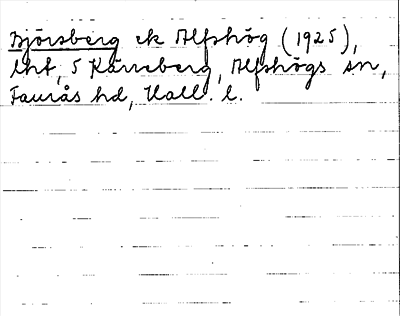 Björsberg ek Alfshög (1925),
lht, 5 Kärreberg, Alfshögs sn,
Faurås hd, Hall. l.